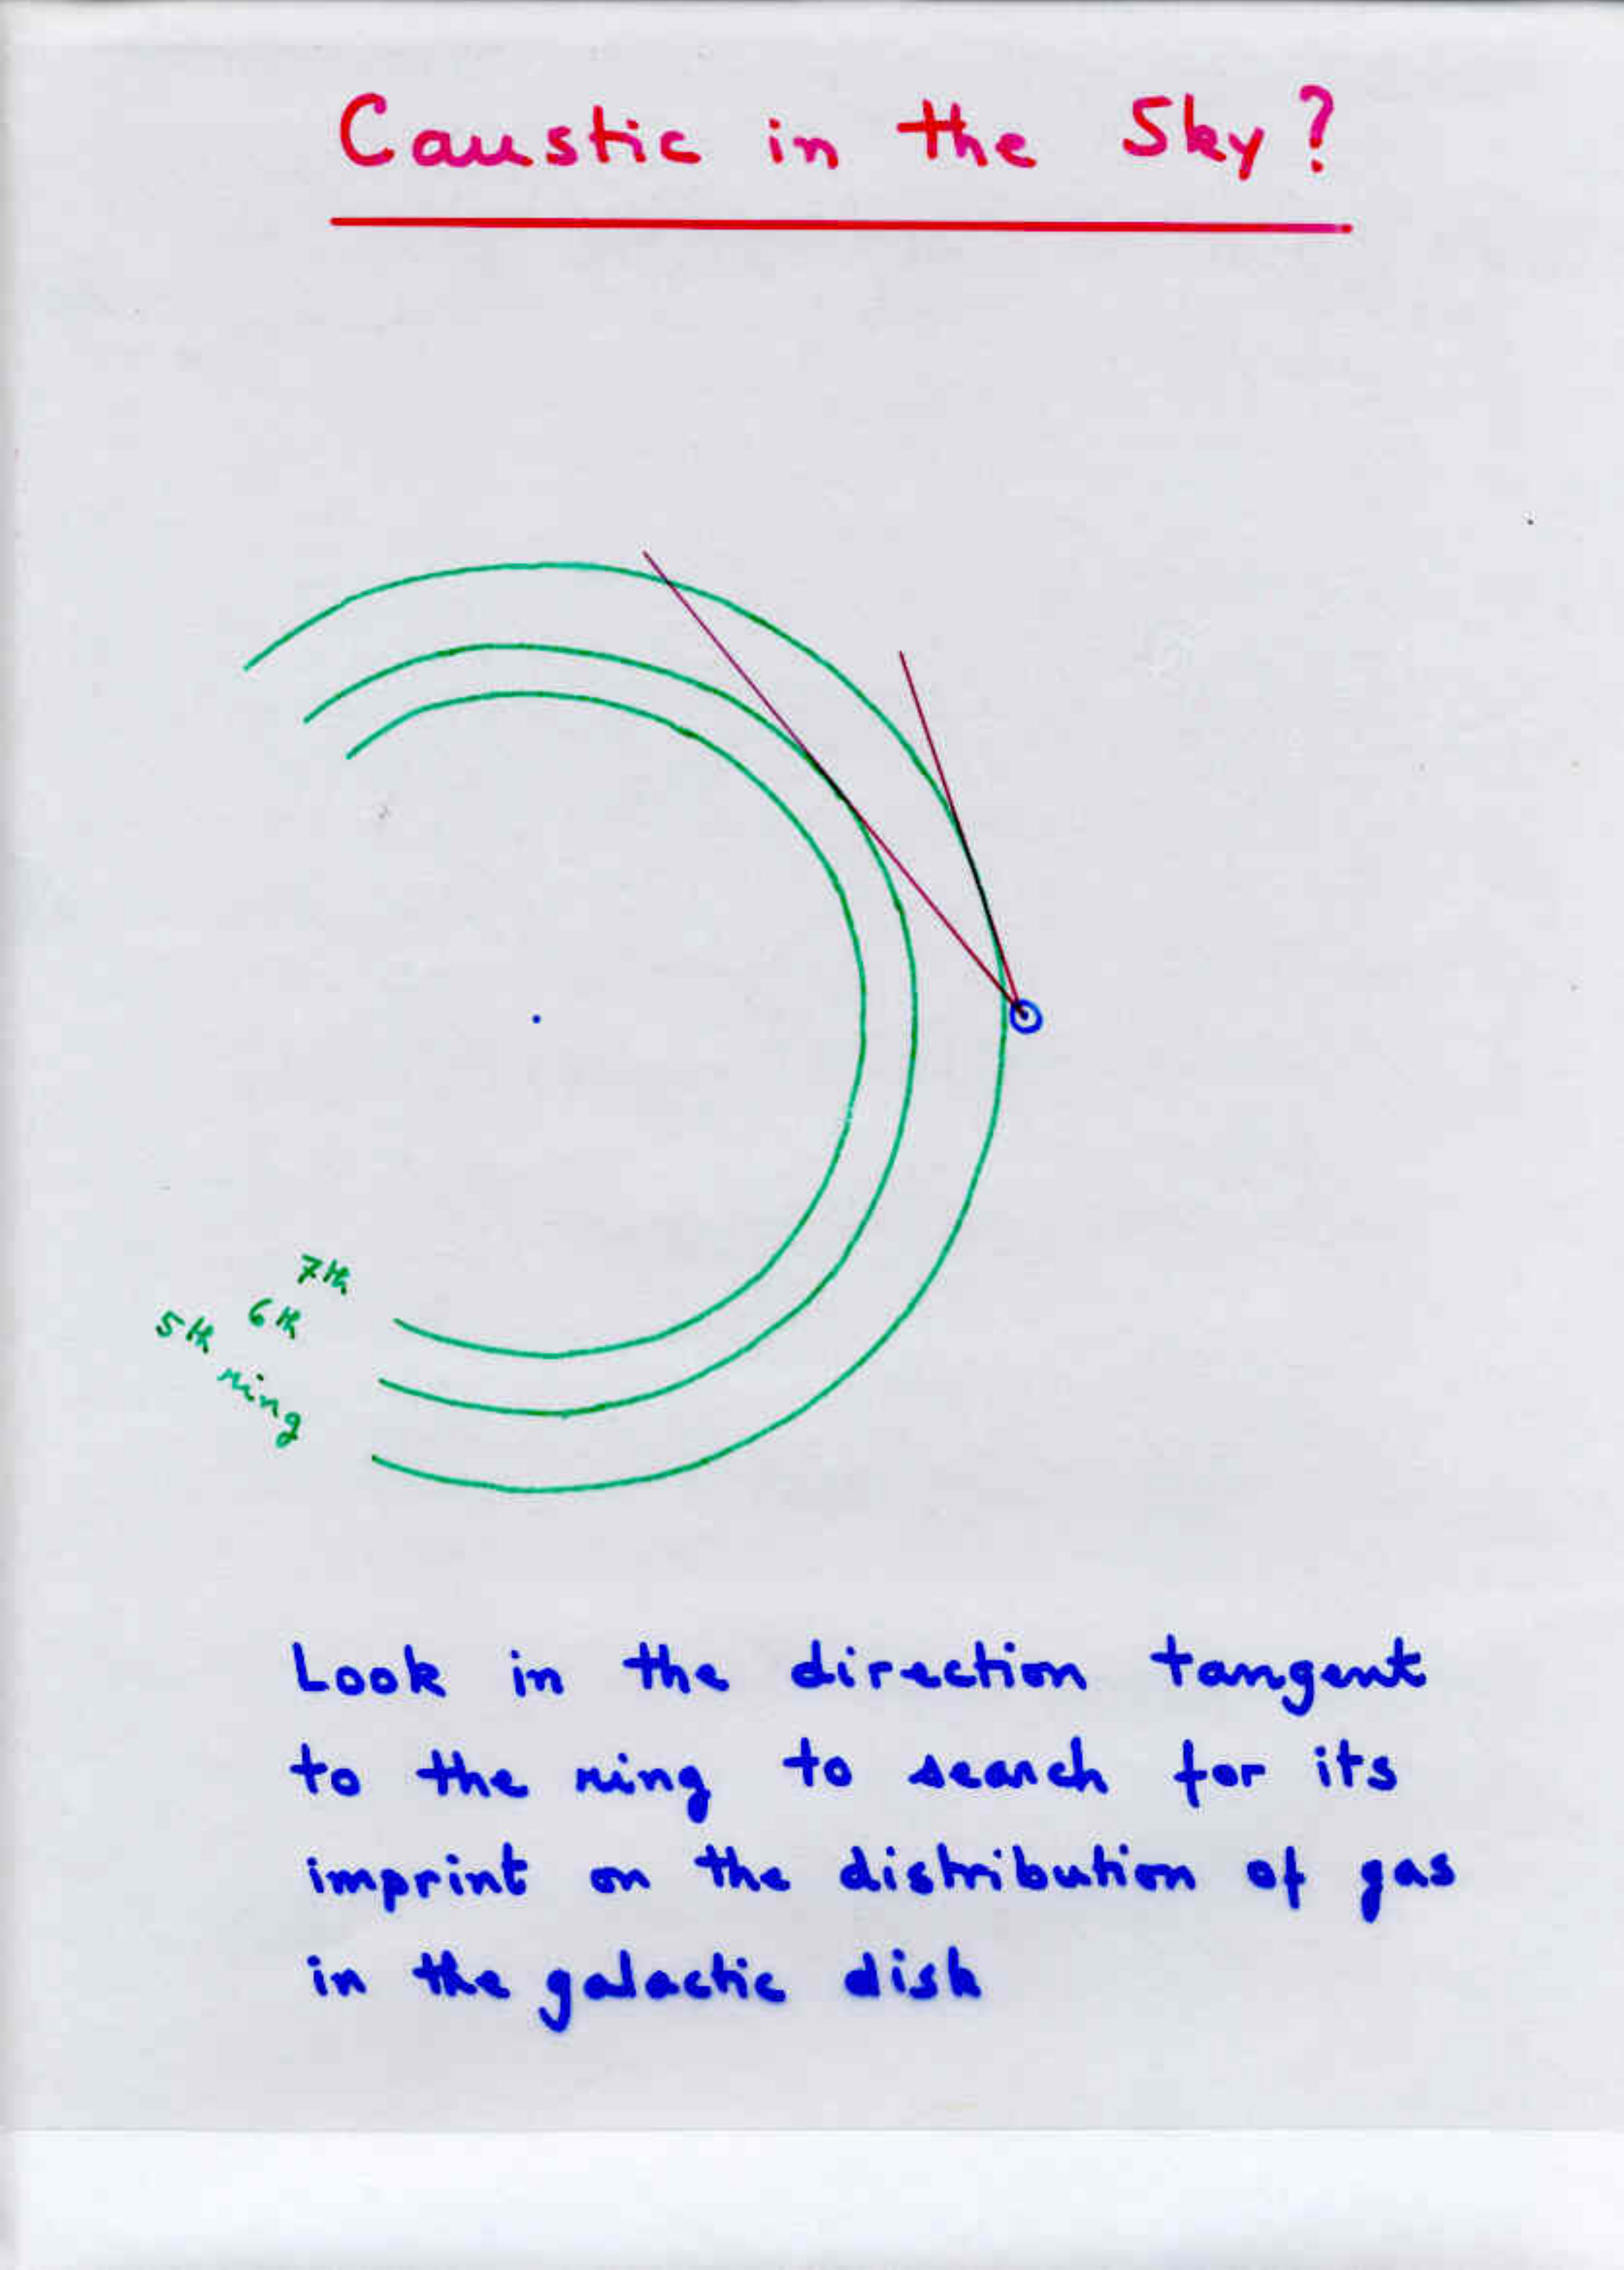 Caustic in the Sky?
7th
6th
5th
ring
Look in the direction tangent
to the ring to search for its
imprint on the distribution of gas
in the galactic disk